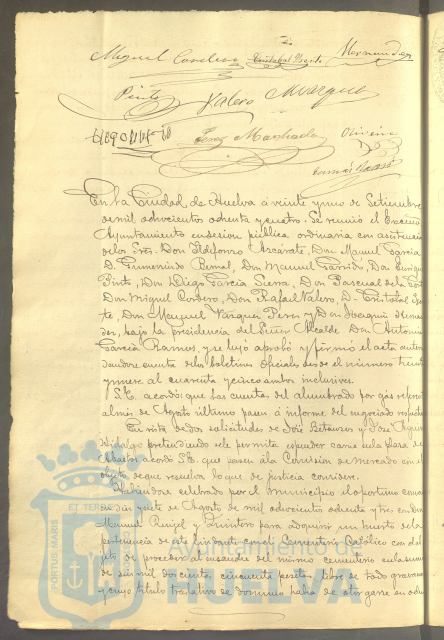 Miguel Cordero Cristobal Hernandez
Pinto Valero Marquez
Perez Machado Oliveira
En la Ciudad de Huelva á veinte y uno de Setiembre
de mil ochocientos ochenta y cuatro. Se reunió el Excmo
Ayuntamiento en sesion pública ordinaria con asistencia
delos Sres. Don Ildefonso Azcárate, Don Manuel Garcia
D. Bernal, Don Manuel Garrido, Don Enrique
Pinto, Don Diego Garcia Sierra, Don Pascual de la
Don Miguel Cordero, Don Rafael Valero, D. Cristobal
Don Manuel Vazquez Perez y Don Joaquin
bajo la presidencia del Alcalde Don Antonio
Garcia Ramos, y se leyó aprobó y firmó el acta
cuenta delos boletines oficiales desde el número treinta
y al cuarenta y cinco ambos inclusives.
S.E. acordó que las cuentas del alumbrado por gás
al mes de Agosto último pasen á informe del negociado
En vista de dos solicitudes de José y José
Hidalgo pretendiendo se le permita expender carne en la Plaza de
Abastos acordó S.E. que pasen á la Comision de mercado con el
objeto de que resuelva lo que de justicia considere.
Habiendose celebrado por el municipio el oportuno
en dia y siete de Agosto de mil ochocientos ochenta y tres con Don
Manuel y Quintero para adquirir un huerto de la
pertenencia de este lindante con el Cementerio Católico con el
de proceder al ensanche del mismo cementerio en la suma
de mil doscientas cincuenta pesetas libre de todo gravamen
y cuyo titulo traslativo de dominio habia de otorgarse
PORTUS MARIS
ET TERRAE
Ayuntamiento de
HUELVA